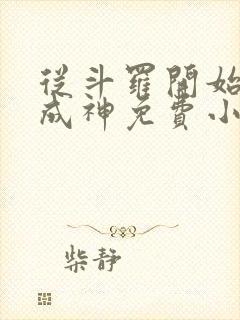 從斗羅開始
成神免費小
柴靜